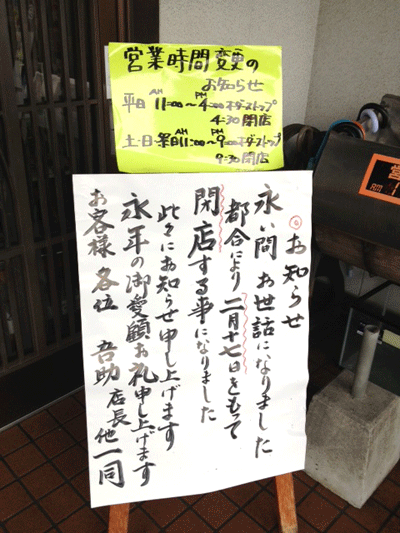 営業時間変更の
お知らせ
平日 AM11:00〜PM4:00オーダーストップ
4:30閉店
土・日・祭日AM11:00〜PM9:00オーダーストップ
9:30閉店
お知らせ
永い間お世話になりました
都合により二月十七日をもって
閉店する事になりました
此々にお知らせ申し上げます
永年の御愛顧お礼申し上げます
お客様各位 吾助店長他一同
営
AM 1